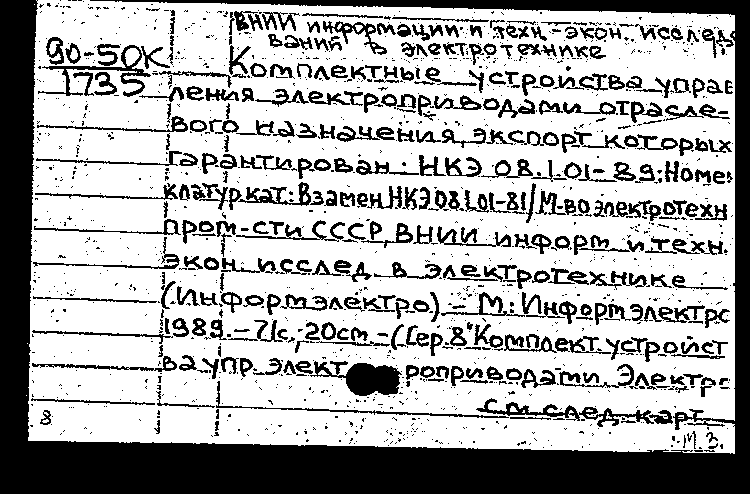 ВНИИ информации и техн.-экон. исследо
ваний в электротехнике
90-50К
1735
Комплектные устройства управ
ления электроприводами отрасле-
вого назначения, экспорт которых
гарантирован: НКЭ 08.1.01-89: Номен
клатур.кат.: Взамен НКЭ 08.1.01-81/М-во электротехн
пром-сти СССР, ВНИИ информ. и техн.
экон. исслед. в электротехнике
(Информэлектро). - М.: Информэлектро
1989. - 71с.; 20см. - (Сер. 8 "Комплект. устройст
ва упр. элект роприводами. Электро
см. след. карт.
8
М. З.